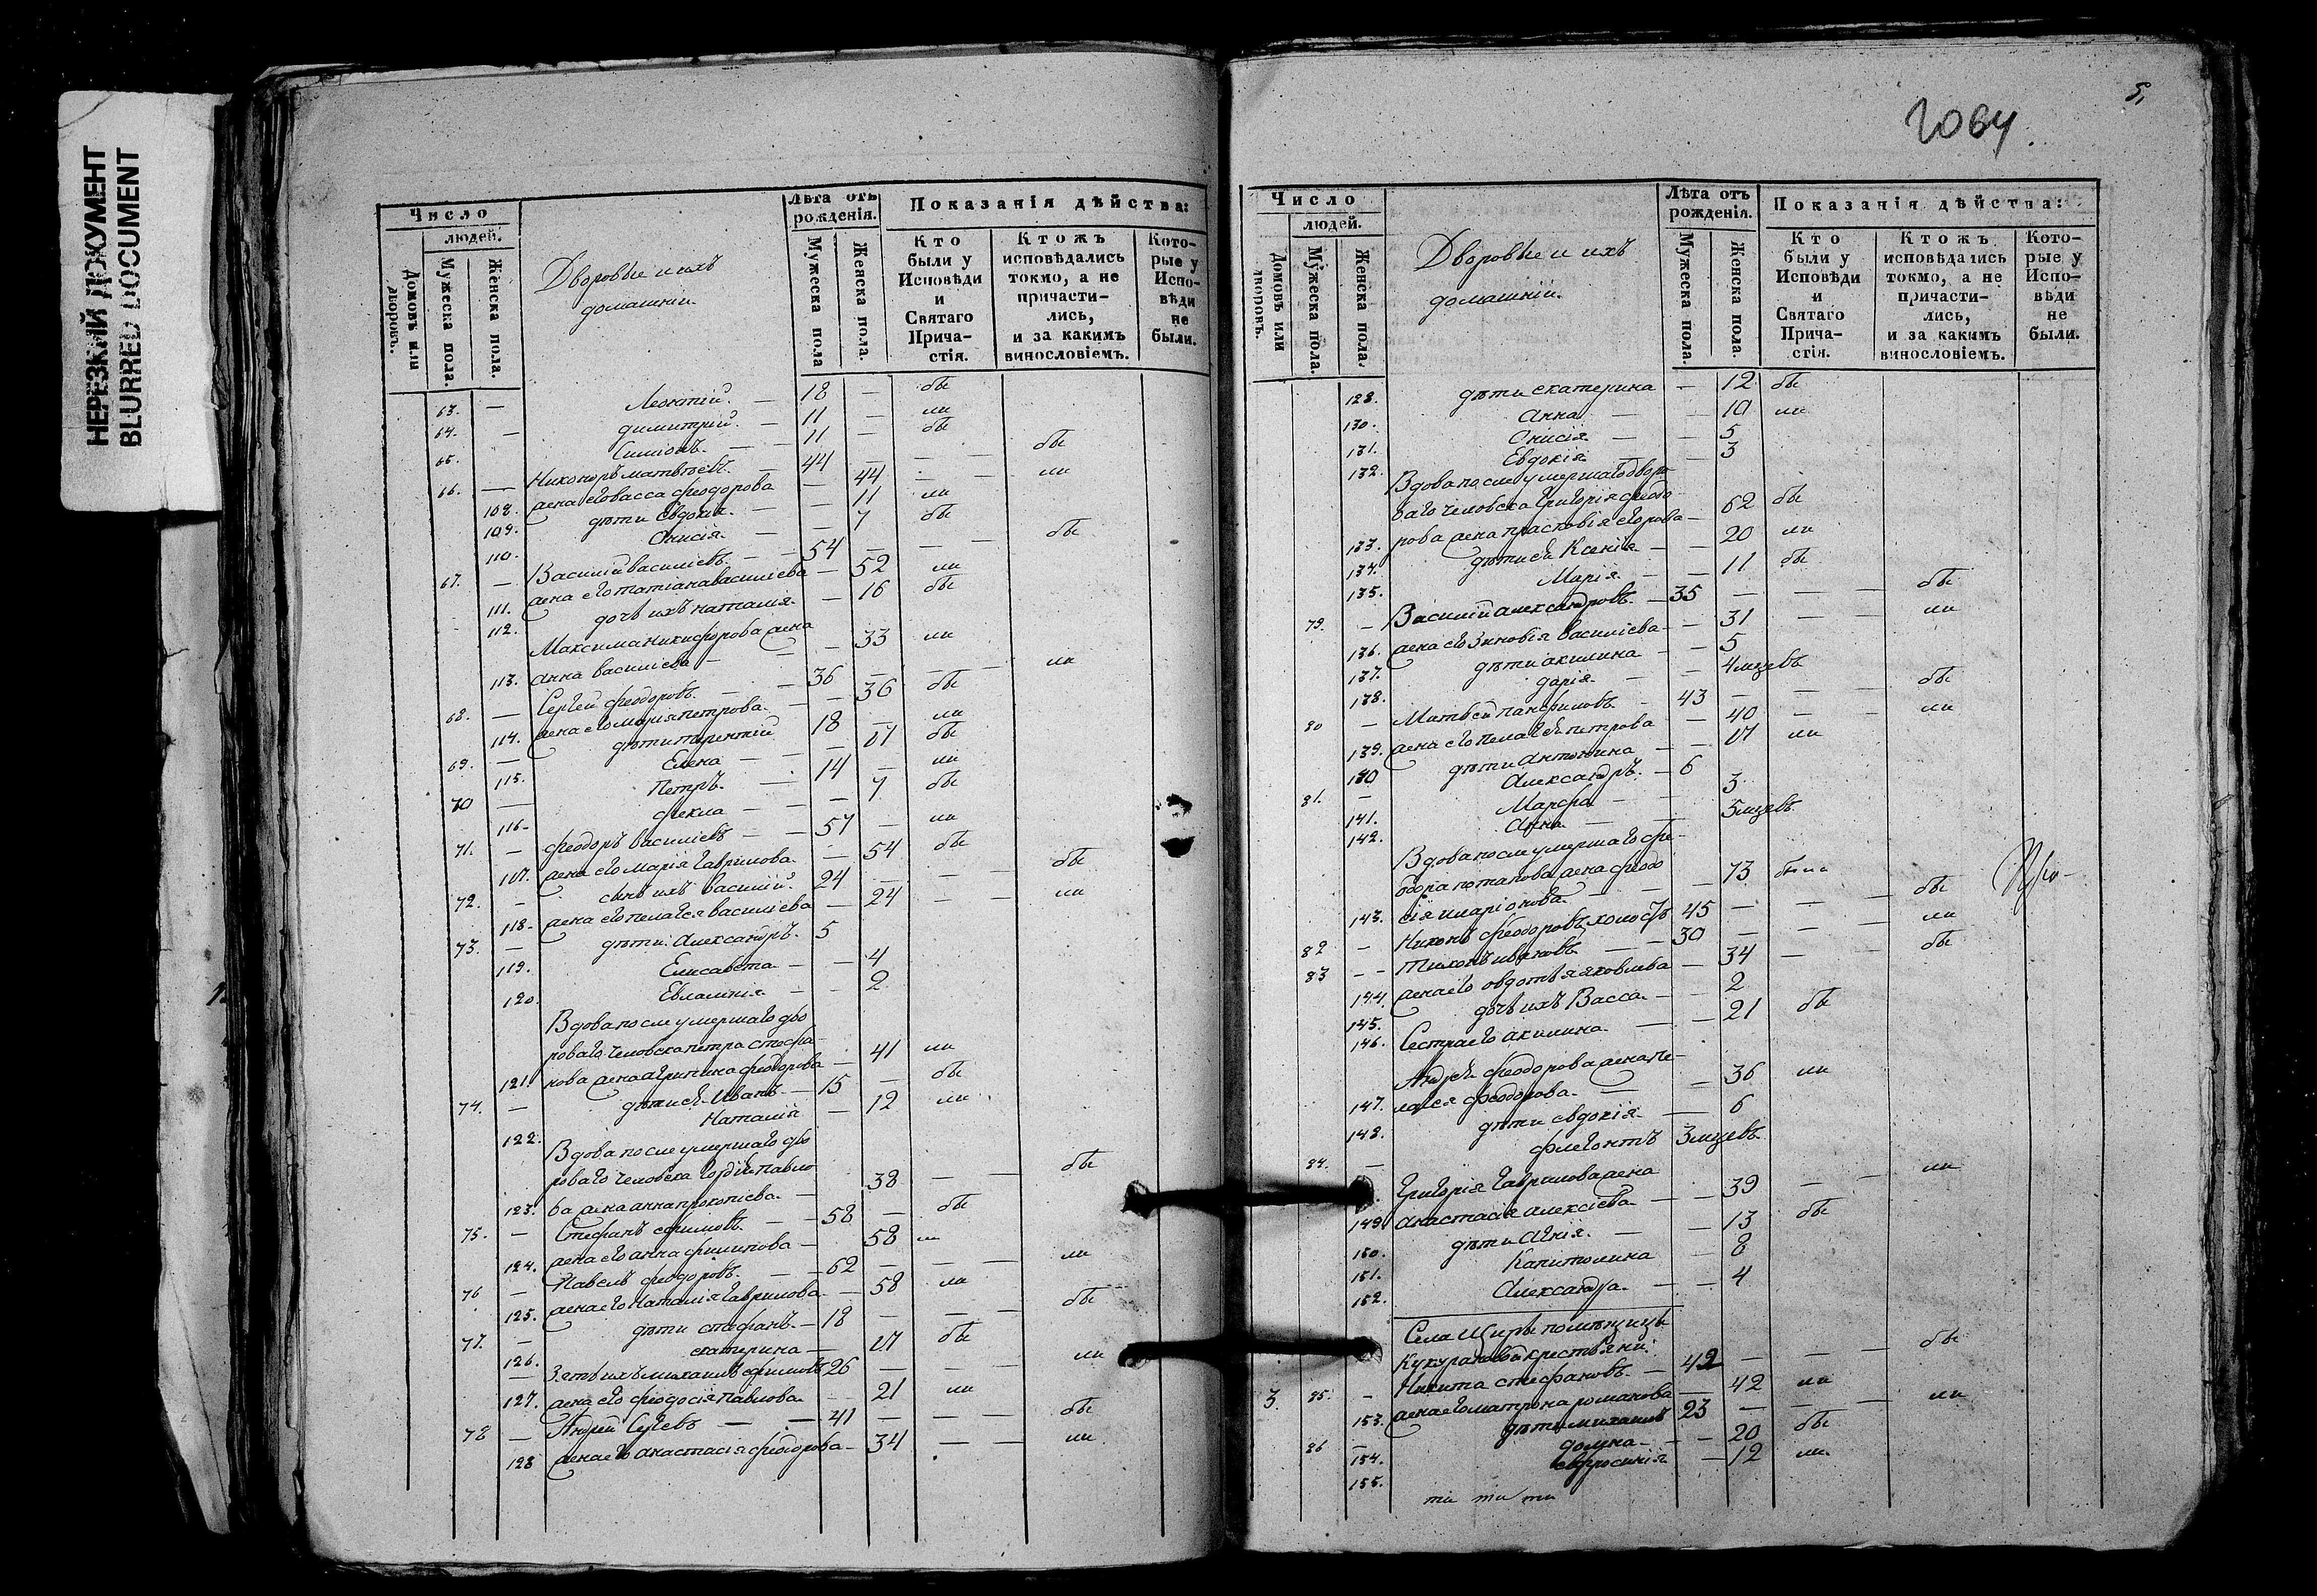 НЕРЕЗКИЙ ДОКУМЕНТ
BLURRED DOCUMENT
Число
людей.
Домовъ или дворовъ.
Мужеска пола.
Женска пола.
Дворовые и ихъ
домашнiи.
Лѣта отъ рожденiя.
Мужеска пола
Женска пола.
Показанiя дѣйства:
Кто были у Исповѣди и Святаго Прича-стiя.
Ктожъ исповѣдались токмо, а не причасти-лись, и за какимъ винословiемъ.
Кото-рые у Испо-вѣди не были.
63. — Леонтiй. — 18 — бы
64. — Димитрiй. — 11 — ли
65. Симiонъ. — 11 — бы
66. — Никоноръ Матвѣевъ. — 44 — — бы
108. жена его Васса Феодорова — 44 — ли
109. дѣти Евдокiя. — — 11 ли
110. Анисiя. — — 7 бы
67. — Василiй Василiевъ. — 54 — — бы
111. жена его Татiана Василiева — 52 ли
112. дочь ихъ Наталiя. — 16 бы
Максима Никифорова жена
113. Анна Василiева — — 33 ли
68. — Сергей Феодоровъ. — 36 — — ли
114. жена его Марiя Петрова. — 36 бы
69. — дѣти Терентiй 18 — ли
115. Елена — — 17 бы
70 — Петръ. — 14 — ли
116. Фекла — — 7 бы
71. — Феодоръ Василiевъ — 57 — ли
117. жена его Марiя Гаврилова. — 54 бы
72. — сынъ ихъ Василiй. 24 — — бы
118. жена его Пелагея Василiева — 24 — ли
73. — дѣти: Александръ. 5
119. Елисавета — — 4
120. Евлампiя. — — 2
Вдова после умершаго дво
роваго человека Петра Стефа-
121. нова жена Агрипина Феодорова — 41 ли
74. — дѣти ея Иванъ — 15 — бы
122. Наталiя — 12 ли
Вдова после умершаго дво
роваго человека Гордѣя Павло
123. ва жена Анна Прокопiева. — 38 — бы
75. — Стефанъ Ефимовъ. — 58 — бы
124. жена его Анна Филипова — 58 ли
76 — Павелъ Феодоровъ. — 62 — — ли
125. жена его Наталiя Гаврилова. — 58 ли
77. — дѣти Стефанъ. — 18 — — бы
126. Екатерина — 17 бы
— Зять ихъ Михаилъ Ефимовъ 26 — — ли
127. жена его Феодосiя Павлова. — 21 ли
78 — Андрей Сергевъ — — 41 — — бы
128 жена его Анастасiя Феодорова — 34 — — ли
5.
2064.
Число
людей.
Домовъ или дворовъ.
Мужеска пола.
Женска пола.
Дворовые и ихъ
домашнiй.
Лѣта отъ рожденiя.
Мужеска пола.
Женска пола.
Показанiя дѣйства:
Кто были у Исповѣди и Святаго Прича-стiя.
Ктожъ исповѣдались токмо, а не причасти-лись, и за какимъ винословiемъ.
Кото-рые у Испо-вѣди не были.
128. дѣти Екатерина — 12 бы
130. Анна — — 10 ли
131. Анисiя — — 5
132. Евдокiя — — 3
Вдова после умершаго дворо
ваго человека Григорiя Феодо
133. рова жена Прасковiя Егорова — 62 бы
134. дѣти ея Ксенiя — — 20 ли
135. Марiя. — — 11 бы
79. — Василiй Александровъ. — 35 — — бы
136. жена его Зиновiя Василiева — 31 — ли
137. дѣти Акилина — — 5
138. Дарiя. — — 4 мцевъ
80 — Матвей Панфиловъ. — 43 — — бы
139. жена его Пелагея Петрова — 40 — ли
140 дѣти Антонина — — 17 ли
81. — Александръ. — 6
141. Марфа — — 3
142. Анна. — — 5 мцевъ.
Вдова после умершаго Фе-
одора Потапова жена Феодо
143. сiя Иларiонова. — — 73 была
82 — Никонъ Феодоровъ холостъ 45 — — бы
83 — Тихонъ Ивановъ — — 30 — — ли
144. жена его Овдотья Яковлева — 34 — бы
145. дочь ихъ Васса. — — 2
146. Сестра его Акилина. — — 21 бы
Андрея Феодорова жена Пе-
147. лагея Феодорова. — — 36 ли
148. дѣти Евдокiя. — 6
84. — Флегонтъ 3 мцевъ.
Григорiя Гаврилова жена
149. Анастасiя Алексiева. — — 39 — — ли
150. дѣти Агнiя. — — 13 бы
151. Капитолина — 8
152. Александра. — — 4
Села Щиры помѣщицы
крестьяни.
3. 85. — Никита Стефановъ. — 42 — — бы
153. жена его Матрона Романова — 42 ли
86 — дѣти Михаилъ 23 — — ли
154. Домна — — 20 бы
155. Евфросинiя — 12 ли